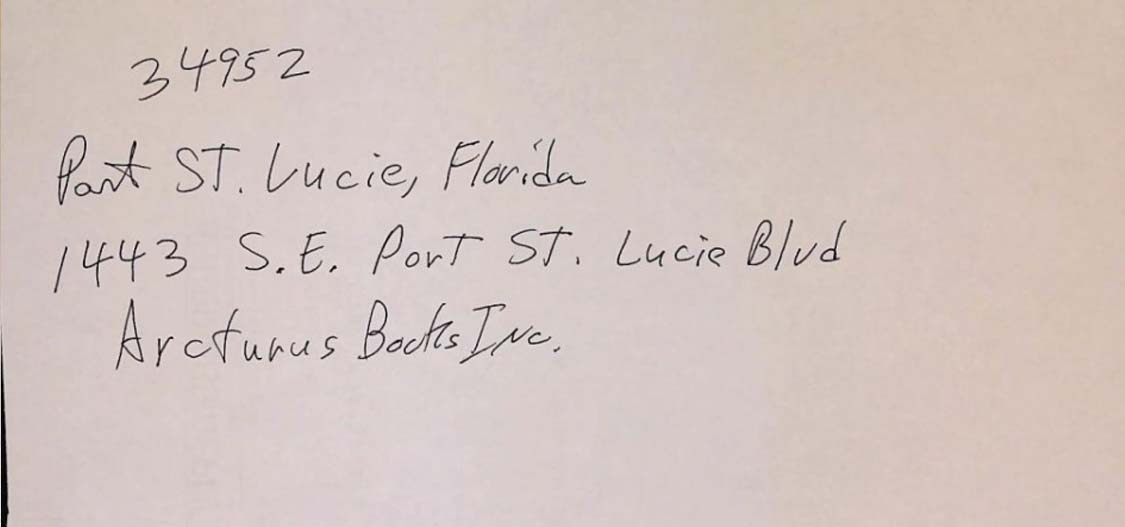 34952
Port ST. Lucie, Florida
1443 S.E. Port ST. Lucie Blvd
Arcturus Books Inc.